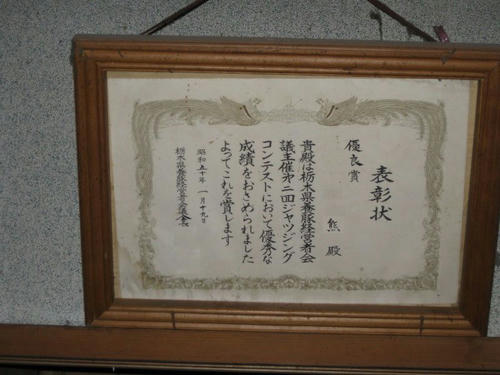 表彰状
優良賞
熊 殿
貴殿は栃木県養豚経営者会
議主催第二回ジャツジング
コンテストにおいて優秀な
成績をおさめられました
よってこれを賞します
昭和五十年 一月十九日
栃木県養豚経営者会議会長